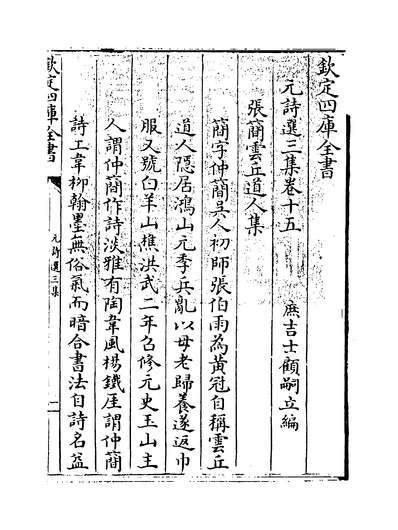 欽定四庫全書
元詩選三集卷十五
庶吉士顧嗣立編
張簡雲丘道人集
簡字仲簡吳人初師張伯雨為黃冠自稱雲丘
道人隱居鴻山元季兵亂以母老歸養遂返巾
服又號白羊山樵洪武二年召修元史玉山主
人謂仲簡作詩淡雅有陶韋風楊鐵厓謂仲簡
詩工韋柳翰墨無俗氣而暗合書法自詩名益
欽定四庫全書
元詩選三集